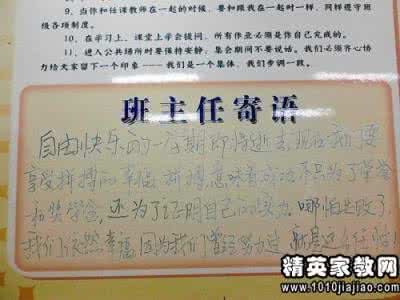 9、当你和任课教师在一起的时候，要和跟我在一起时一样，同样遵守班
级各项制度。
10、在学习上，课堂上学会提问，所有作业必须是你自己完成的。
11、进入公共场所时要保持安静；集会期间不要说话。我们必须齐心协
力给大家留下一个印象——我们是一个集体，我们步调一致。
班主任寄语
自由快乐的一星期即将逝去现在我们要
享受拼搏的幸福 拼搏意味着成功不只为了荣誉
和奖学金，还为了证明自己的实力。哪怕失败了
我们依然幸福,因为我们曾经努力过
精英家教网
www.1010jiajiao.com